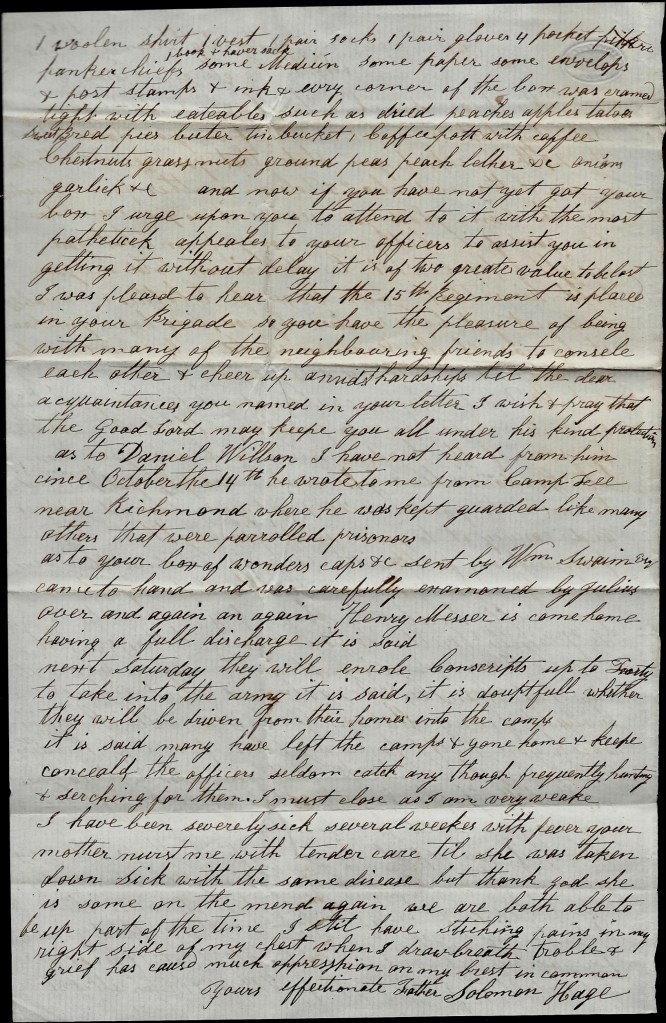 1 woolen shirt 1 vest 1 pair socks 1 pair gloves 4 pocket
1 book & haver sack
hankerchiefs some Medicin some paper some envelops
& post stamps & ink & evry corner of the box was cramed
tight with eateables such as dried peaches apples tatoes
fried pies buter tin bucket, 1 Coffee pott with coffee
Chestnuts grass nuts ground peas peach lether &c onions
garlick &c and now if you have not yet got your
box I urge upon you to attend to it with the most
pathetick appeales to your officers to assist you in
getting it without delay it is of two greate value to be lost
I was pleasd to hear that the 15th Regiment is placed
in your Brigade so you have the pleasure of being
with many of the neighbouring friends to consele
each other & cheer up amids hardships til the dear
acquaintances you named in your letter I wish & pray that
the Good Lord may keepe you all under his kind protection
as to Daniel Willson I have not heard from him
cince October the 14th he wrote to me from Camp Lee
near Richmond where he was kept guarded like many
others that were parrolled prisonors
as to your box of wonders caps &c sent by Wm Swaim
came to hand and was carefully examoned by Julius
over and again an again Henry Messer is come home
having a full discharge it is said
next Saturday they will enrole Conscripts up to Forty
to take into the army it is said, it is douptfull whether
they will be driven from their homes into the camps
it is said many have left the camps & gone home & keepe
conceald the officers seldom catch any though frequently hunting
& serching for them. I must close as I am very weake
I have been severely sick several weekes with fever your
mother nurst me with tender care til she was taken
down sick with the same disease but thank god she
is some on the mend again we are both able to
be up part of the time I stil have stiching pains in my
right side of my chest when I draw breath troble &
grief has causd much oppression on my brest in common
Yours effectionate Father Solomon Hage